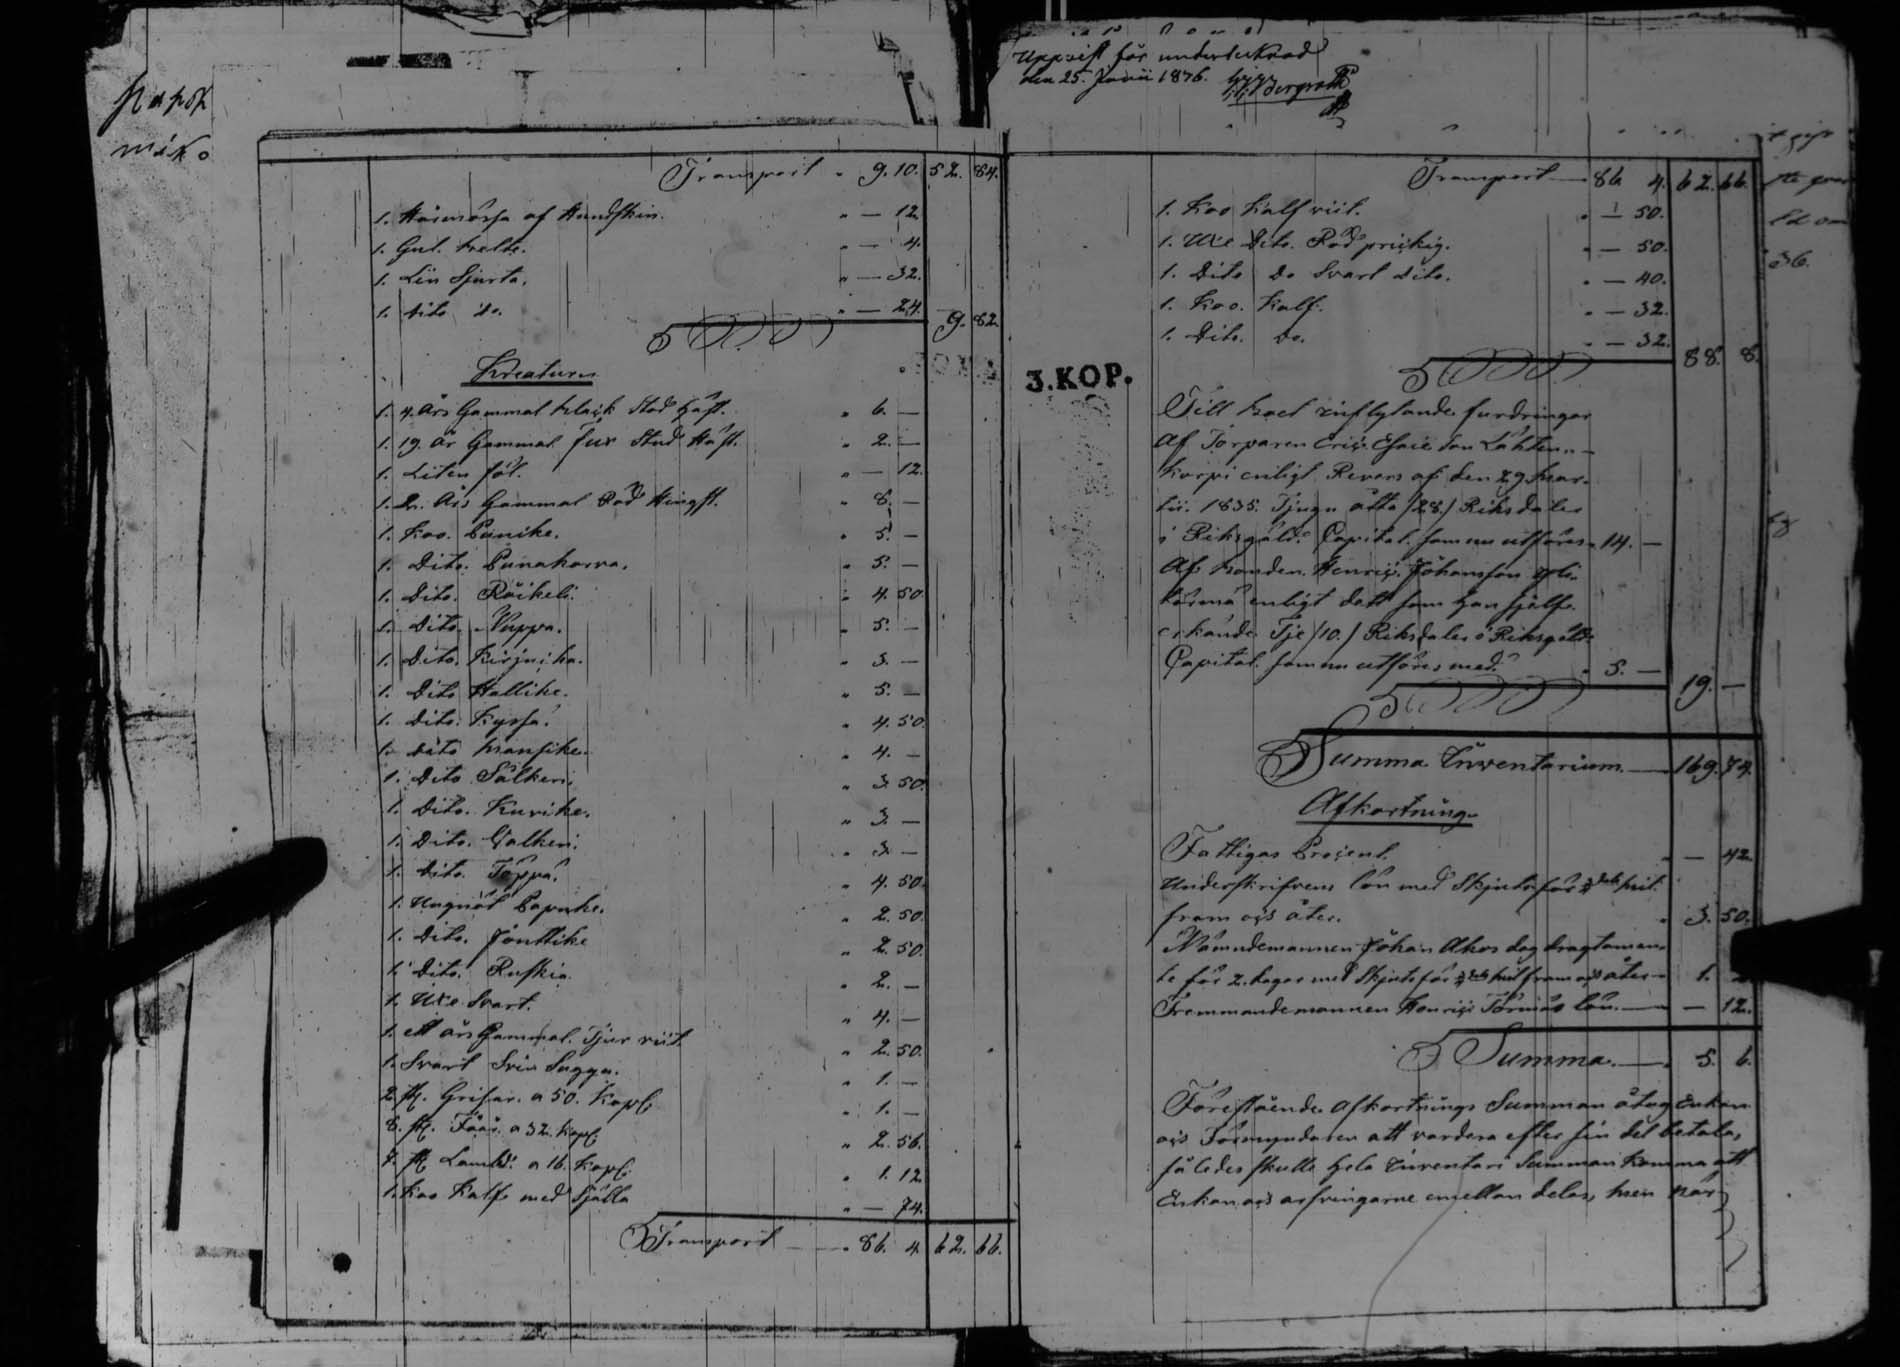 Uppvist för undertecknad
den 25. Junii 1836.
Transport " 9. 10. 52. 84.
1. Hårmössa af Hundskin. " — 12.
1. Gul. Welte. " — 4.
1. Lin Sjorta. " — 32.
1. dito do. " — 24.
9. 82.
Kreaturen
1. 4. Års Gammal black Stod häst. " 6. —
1. 19. År Gammal Fux Stod Häst. " 2. —
1. Liten föl. " — 12.
1. Års Gammal Röd Hingst. " 8. —
1. Koo. Punike. " 5. —
1. Dito. Punakorva. " 5. —
1. Dito. Räikeli. " 4. 50.
1. Dito. Nuppa. " 5. —
1. Dito. Kirjuika. " 3. —
1. Dito Hallike. " 5. —
1. Dito. Kyssä. " 4. 50.
1. Dito Mansike. " 4. —
1. Dito Sälkeri. " 3. 50.
1. Dito. Kuvike. " 3. —
1. Dito. Galkeri. " 3. —
1. Dito. Töppä. " 4. 50.
1. Ungnöt Papuke. " 2. 50.
1. Dito. Jonttike " 2. 50.
1. Dito. Ruskia. " 2. —
1. Uxe Svart. " 4. —
1. ett års Gammal. Tjur viit. " 2. 50.
1. Svart Svin Sugga. " 1. —
2. st. Grisar. a 50. Kopk. " 1. —
8. st. Fåår. a 32. Kopk. " 2. 56.
7. st Lamb. a 16. Kopk. " 1. 12.
1. Koo Kalf med Själla " — 74.
Transport — " 86. 4. 62. 66.
Transport — 86 4. 62. 66.
1. Koo Kalf viit. " — 50.
1. Uxe Dito. Röd prickig. " — 50.
1. Dito Do Svart Dito. " — 40.
1. Koo. Kalf. " — 32.
1. Dito. Do. " — 32.
88. 8.
3. KOP.
Till boet inflytande fordringar
Af Torparen Eric Esaie son Lähten-
korpi enligt Revers af den 29 Mar-
tii. 1835. Tjugu åtta /28./ Riksdaler
i Riksgälds Capital. som nu utföres " 14. —
Af bonden Henric Johansson Yli-
törmä enligt dett som han sjelf
erkände Tje /10./ Riksdaler i Riksgälds
Capital. som nu utföres med. " 5. —
19. —
Summa Inventarium — 169. 74.
Afkortning.
Fattigas Procent. " — 42.
Underskrifvens lön med Skjuts för
fram och åter. " 3. 50.
Nämndemannen Johan Akos dag dragtamen-
te för 2. dagar med Skjuts för fram och åter — 1.
Fremmandemannen Henric Törmäs lön. — — 12.
Summa. — 5. 6.
Förestående Afkortnings Summan åtog Enkan
och Förmyndaren att vardera efter sin del betala,
således skulle hela Inventari Summan komma att
Enkan och arfvingarne emellan delas, men när